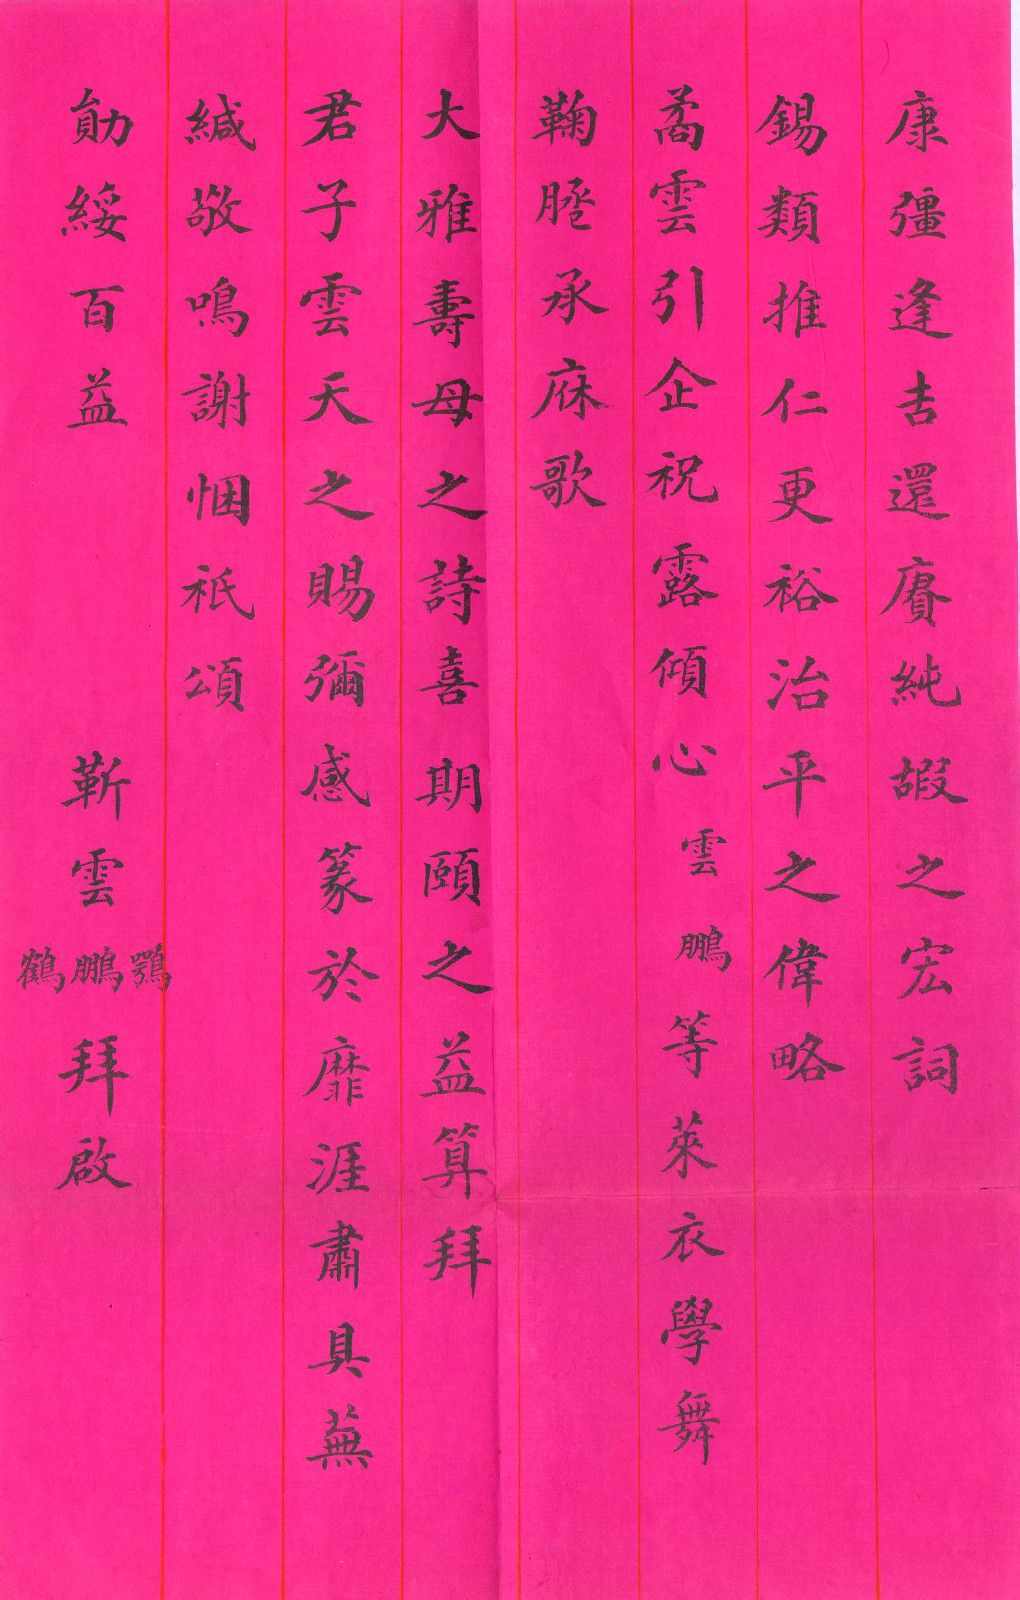 康彊逢吉還賡純嘏之宏詞
錫類推仁更裕治平之偉略
矞雲引企祝露傾心雲鵬等萊衣學舞
鞠𦜕承庥歌
大雅壽母之詩喜期頤之益算拜
君子雲天之賜彌感篆於靡涯肅具蕪
緘敬鳴謝悃祇頌
勛綏百益 靳雲鶚鵬鶴拜啟